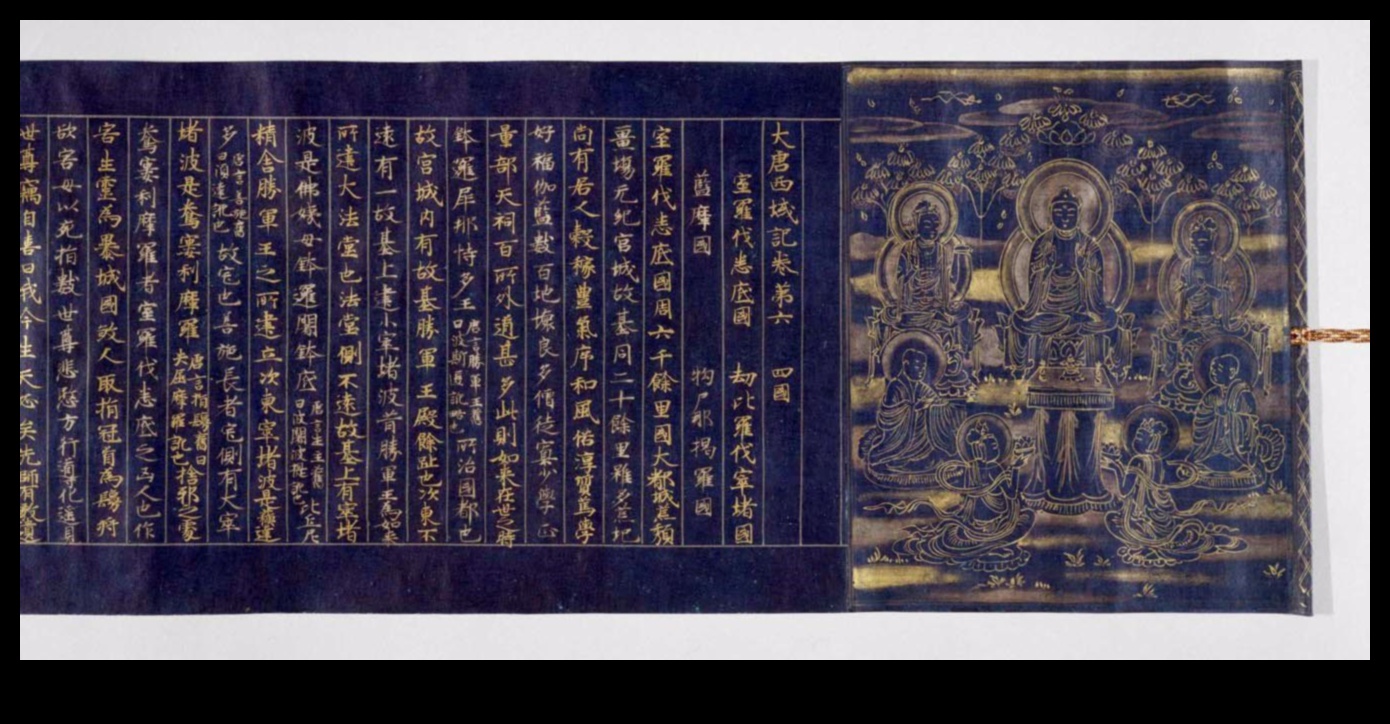 大唐西域記卷第六　四國
室羅伐悉底國　劫比羅伐窣堵國
藍摩國　拘尸那揭羅國
室羅伐悉底國周六千餘里國大都城荒頹
畺場无紀宮城故基同二十餘里雖多荒圮
尚有居人穀稼豐氣序和風俗淳質篤學
好福伽藍數百圮壞良多僧徒寡少學正
量部天祠百所外道甚多此則如來在世之時
鉢羅犀那恃多王唐言勝軍王舊曰波斯匿訛略也所治國都也
故宮城內有故基勝軍王殿餘趾也次東不
遠有一故基上建小窣堵波昔勝軍王為如來
所建大法堂也法堂側不遠故基上有窣堵
波是佛姨母鉢邏闍鉢底唐言生主舊曰波闍波提訛比丘尼
精舍勝軍王之所建立次東窣堵波是蘇達
多唐言善施舊曰須達訛也故宅也善施長者宅側有大窣
堵波是鴦窶利摩羅唐言指鬘舊曰央崛摩羅訛也捨邪之處
鴦窶利摩羅者室羅伐悉底之凶人也作
害生靈為暴城國殺人取指冠首為鬘將
欲害母以充指數世尊悲愍方行導化遙見
世尊竊自喜曰我今生天必矣先師有教遺